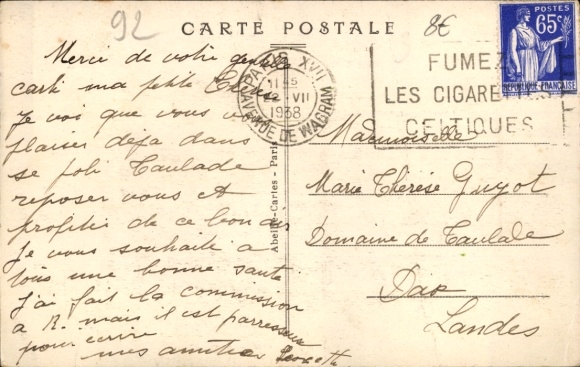 92
CARTE POSTALE
8€
Merci de votre gentille
carte ma petite
Je voi que vous vous
plaisez deja dans
se joli Taulade
reposer vous et
profitez de ce bon air
Je vous souhaite a
tous une bonne santé
J'ai fait la commission
a R. mais il est paresseux
pour ecrire
mes amities
PARIS XVII
11 45
12 VII
1938
AV. RUE DE WAGRAM
FUMEZ
LES CIGARETTES
CELTIQUES
POSTES
65c
REPUBLIQUE FRANÇAISE
Abeille-Cartes - Paris
Mademoiselle
Marie Thérèse Guyot
Domaine de Taulade
Dax
Landes